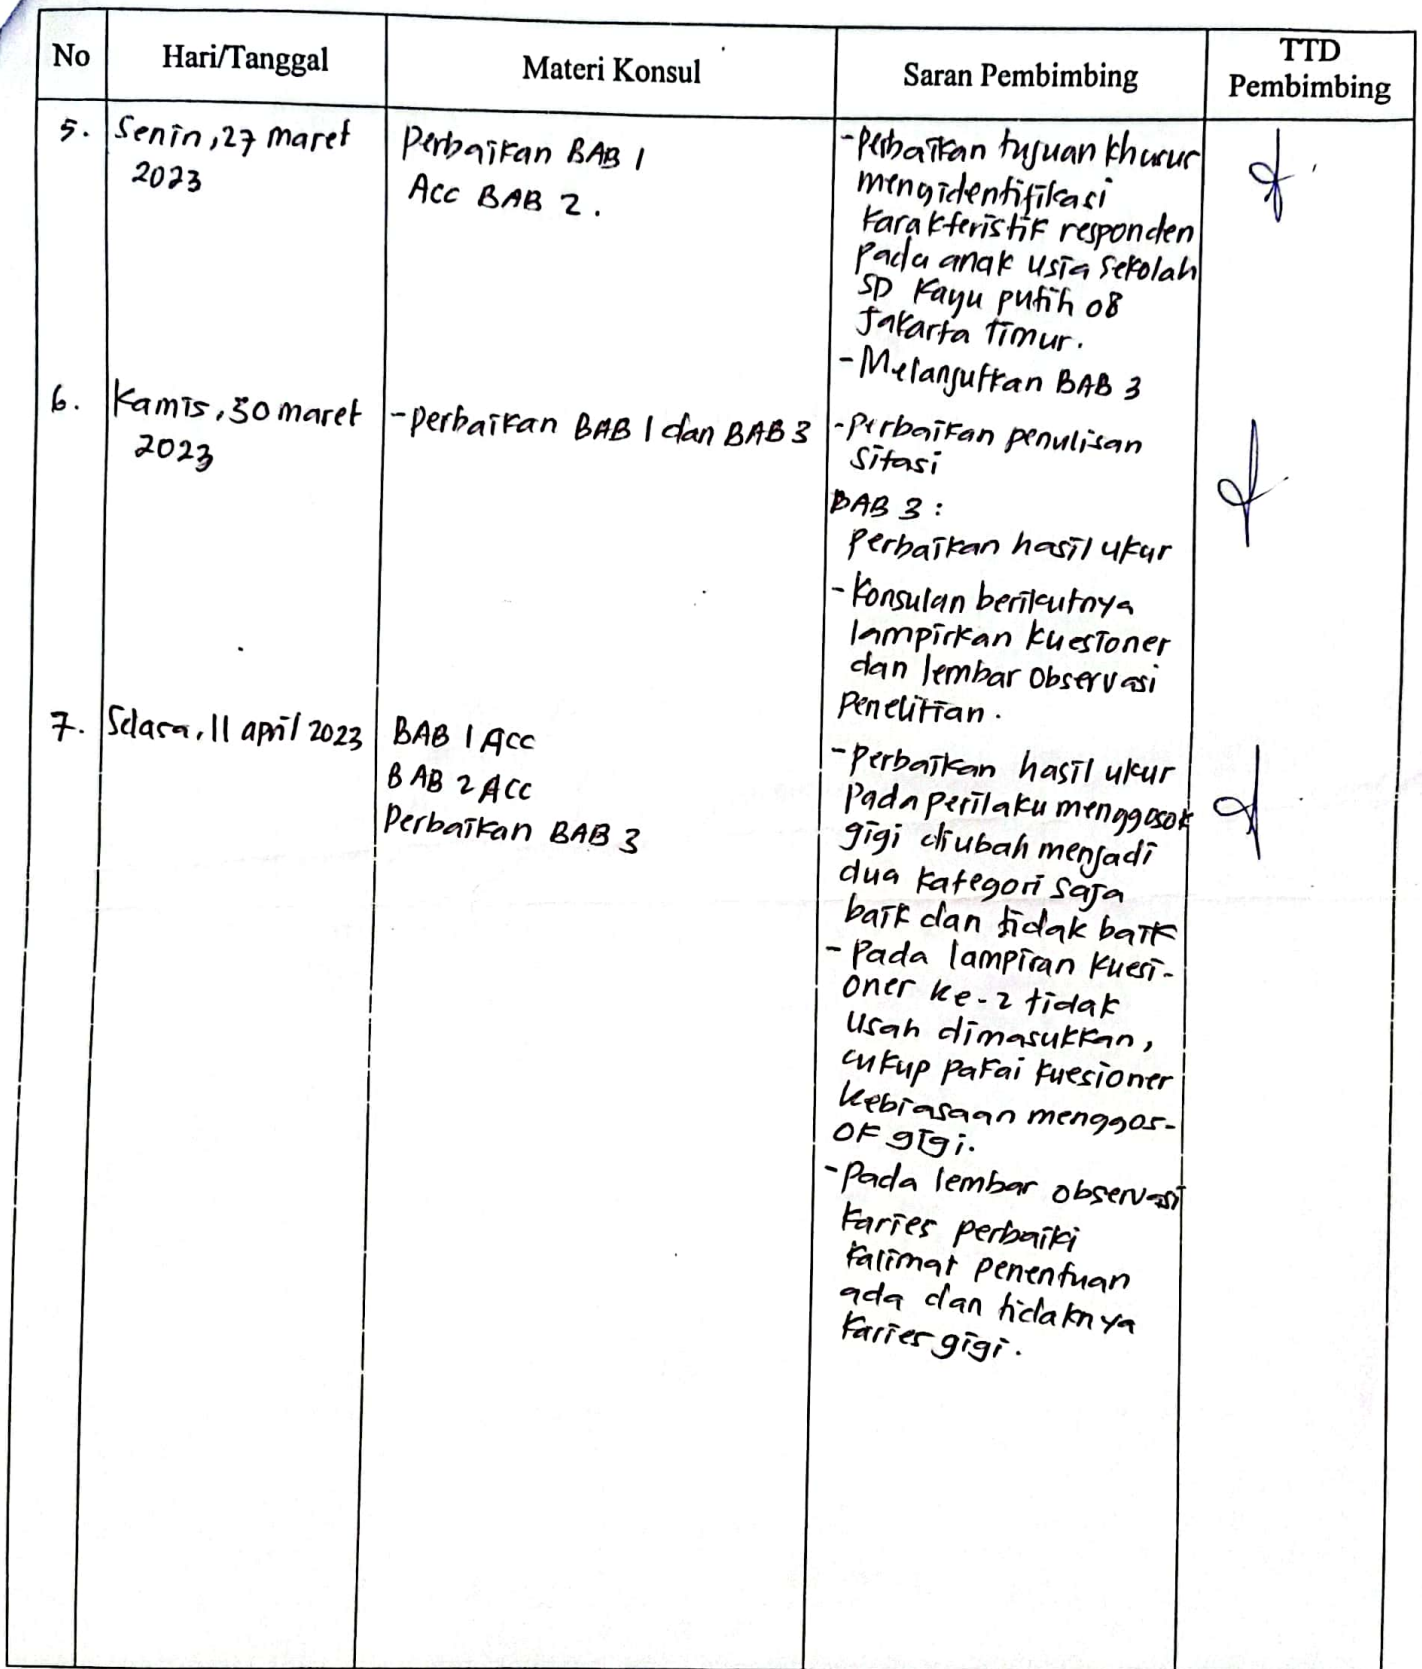 No
Hari/Tanggal
Materi Konsul
Saran Pembimbing
TTD
Pembimbing
5.
Senin, 27 maret
2023
Perbaikan BAB 1
Acc BAB 2.
- Perbaikan tujuan khusus
mengidentifikasi
karakteristik responden
pada anak usia sekolah
SD Kayu putih 08
Jakarta Timur.
- Melanjutkan BAB 3
6.
Kamis, 30 maret
2023
- perbaikan BAB 1 dan BAB 3
- Perbaikan penulisan
Sitasi
BAB 3 :
Perbaikan hasil ukur
- Konsulan berikutnya
lampirkan kuesioner
dan lembar observasi
Penelitian.
7.
Selasa, 11 april 2023
BAB 1 Acc
BAB 2 Acc
Perbaikan BAB 3
- Perbaikan hasil ukur
pada perilaku menggosok
gigi diubah menjadi
dua kategori saja
baik dan tidak baik
- Pada lampiran kuesi-
oner ke-2 tidak
usah dimasukkan,
cukup pakai kuesioner
kebiasaan menggos-
ok gigi.
- Pada lembar observasi
karies perbaiki
kalimat penentuan
ada dan tidaknya
karies gigi.